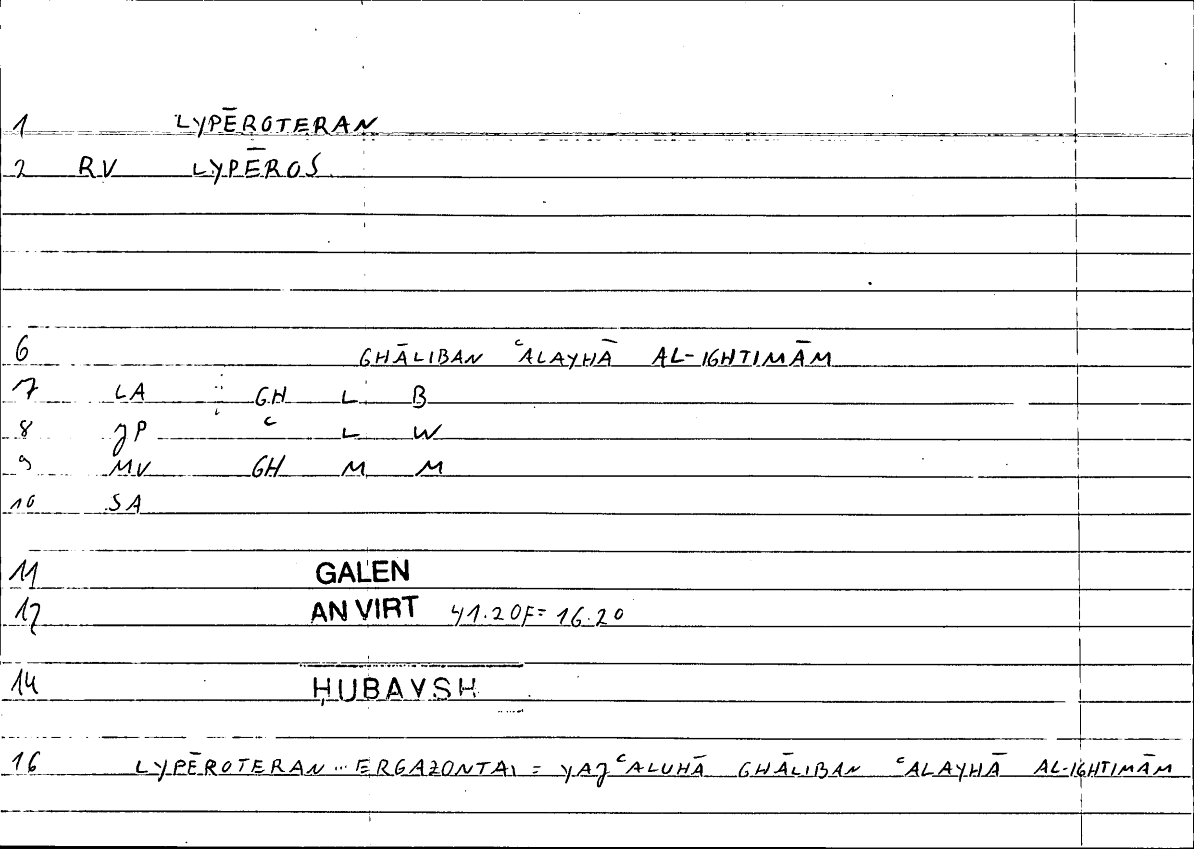 1 LYPĒROTERAN
2 RV LYPĒROS
6 GHĀLIBAN ʿALAYHĀ AL-IGHTIMĀM
7 LA GH L B
8 JP ʿ L W
9 MV GH M M
10 SA
11 GALEN
12 AN VIRT 41.20F= 16.20
14 ḤUBAYSH
16 LYPĒROTERAN ... ERGAZONTAI = YAJʿALUHĀ GHĀLIBAN ʿALAYHĀ AL-IGHTIMĀM